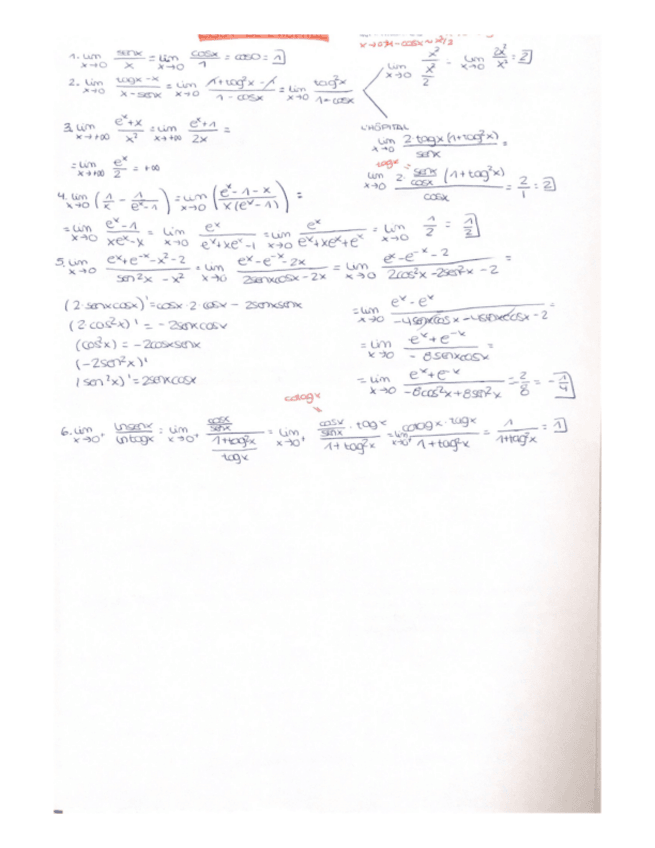 x→0 1-cosx ~ x²/2
1. lim x→0 senx/x = lim x→0 cosx/1 = cos0 = 1
2. lim x→0 (tagx-x)/(x-senx) = lim x→0 (1+tag²x-1)/(1-cosx) = lim x→0 tag²x/(1-cosx)
lim x→0 x²/(x²/2) = lim x→0 2x²/x² = 2
L'HÔPITAL
lim x→0 2·tagx(1+tag²x)/senx =
tagx
lim x→0 2·senx/cosx (1+tag²x)/cosx = 2/1 = 2
3. lim x→+∞ (eˣ+x)/x² = lim x→+∞ (eˣ+1)/2x =
= lim x→+∞ eˣ/2 = +∞
4. lim x→0 (1/x - 1/(eˣ-1)) = lim x→0 ((eˣ-1-x)/(x(eˣ-1))) =
= lim x→0 (eˣ-1)/(xeˣ-x) = lim x→0 eˣ/(eˣ+xeˣ-1) = lim x→0 eˣ/(eˣ+xeˣ+eˣ) = lim x→0 1/2 = 1/2
5. lim x→0 (eˣ+e⁻ˣ-x²-2)/(sen²x-x²) = lim x→0 (eˣ-e⁻ˣ-2x)/(2senxcosx-2x) = lim x→0 (eˣ-e⁻ˣ-2)/(2cos²x-2sen²x-2) =
(2·senxcosx)' = cosx·2·cosx - 2senxsenx
(2·cos²x)' = -2senxcosx
(cos²x) = -2cosxsenx
(-2sen²x)'
(sen²x)' = 2senxcosx
= lim x→0 (eˣ-eˣ)/(-4senxcosx-4senxcosx-2) =
= lim x→0 (eˣ+e⁻ˣ)/(-8senxcosx) =
= lim x→0 (eˣ+e⁻ˣ)/(-8cos²x+8sen²x) = -2/8 = -1/4
cotagx
6. lim x→0⁺ lnsenx/lntagx = lim x→0⁺ (cosx/senx)/((1+tag²x)/tagx) = lim x→0⁺ (cosx/senx · tagx)/(1+tag²x) = lim x→0⁺ (cotagx·tagx)/(1+tag²x) = 1/(1+tag²x) = 1